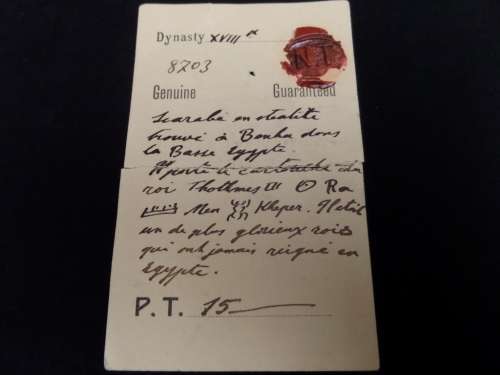 Dynasty XVIII e
8203
N.T.
Genuine Guaranteed
Scarabé en stéatite
trouvé à Benha dans
la Basse Egypte.
Il porte le cartouche du
roi Thothmes III Ra
Men Kheper. Il était
un de plus glorieux rois
qui ont jamais reigné en
Egypte.
P.T. 15